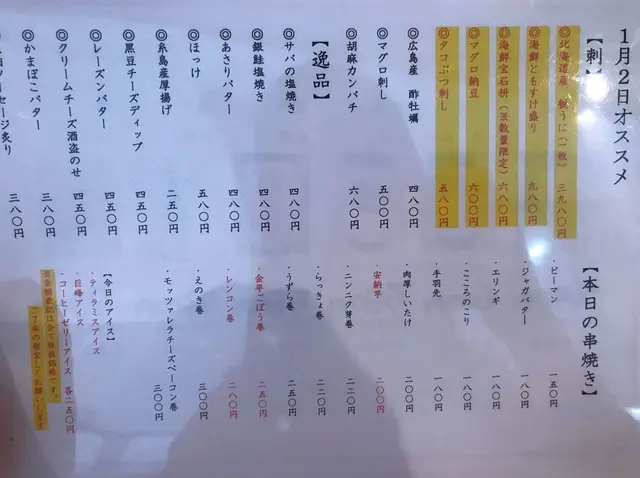 1月2日オススメ
【刺】
北海道産 板うに(一枚) 三九八〇円
◎海鮮ともすけ盛り 九八〇円
◎海鮮宝石枡(※数量限定) 六八〇円
◎マグロ納豆 六〇〇円
◎タコぶつ刺し 五八〇円
◎広島産 酢牡蠣 四八〇円
◎マグロ刺し 五〇〇円
◎胡麻カンパチ 六八〇円
【逸品】
◎サバの塩焼き 四八〇円
◎銀鮭塩焼き 四八〇円
◎あさりバター 四八〇円
◎ほっけ 五八〇円
◎糸島産厚揚げ 二五〇円
◎黒豆チーズディップ 四五〇円
◎レーズンバター 四五〇円
◎クリームチーズ酒盗のせ 四五〇円
◎かまぼこバター 三八〇円
ソーセージ炙り 三八〇円
【本日の串焼き】
・ピーマン 一五〇円
・ジャガバター 一八〇円
・エリンギ 一八〇円
・こころのこり 一八〇円
・手羽先 一八〇円
・肉厚しいたけ 二〇〇円
・安納芋 二〇〇円
・ニンニク芽巻 二二〇円
・らっきょ巻 二二〇円
・うずら巻 二五〇円
・金平ごぼう巻 二五〇円
・レンコン巻 二八〇円
・えのき巻 三〇〇円
・モッツァレラチーズベーコン巻 三〇〇円
【今日のアイス】
・ティラミスアイス
・巨峰アイス
・コーヒーゼリーアイス 各二五〇円
金額表記は全て税抜価格です。
ご了承の程宜しくお願いします